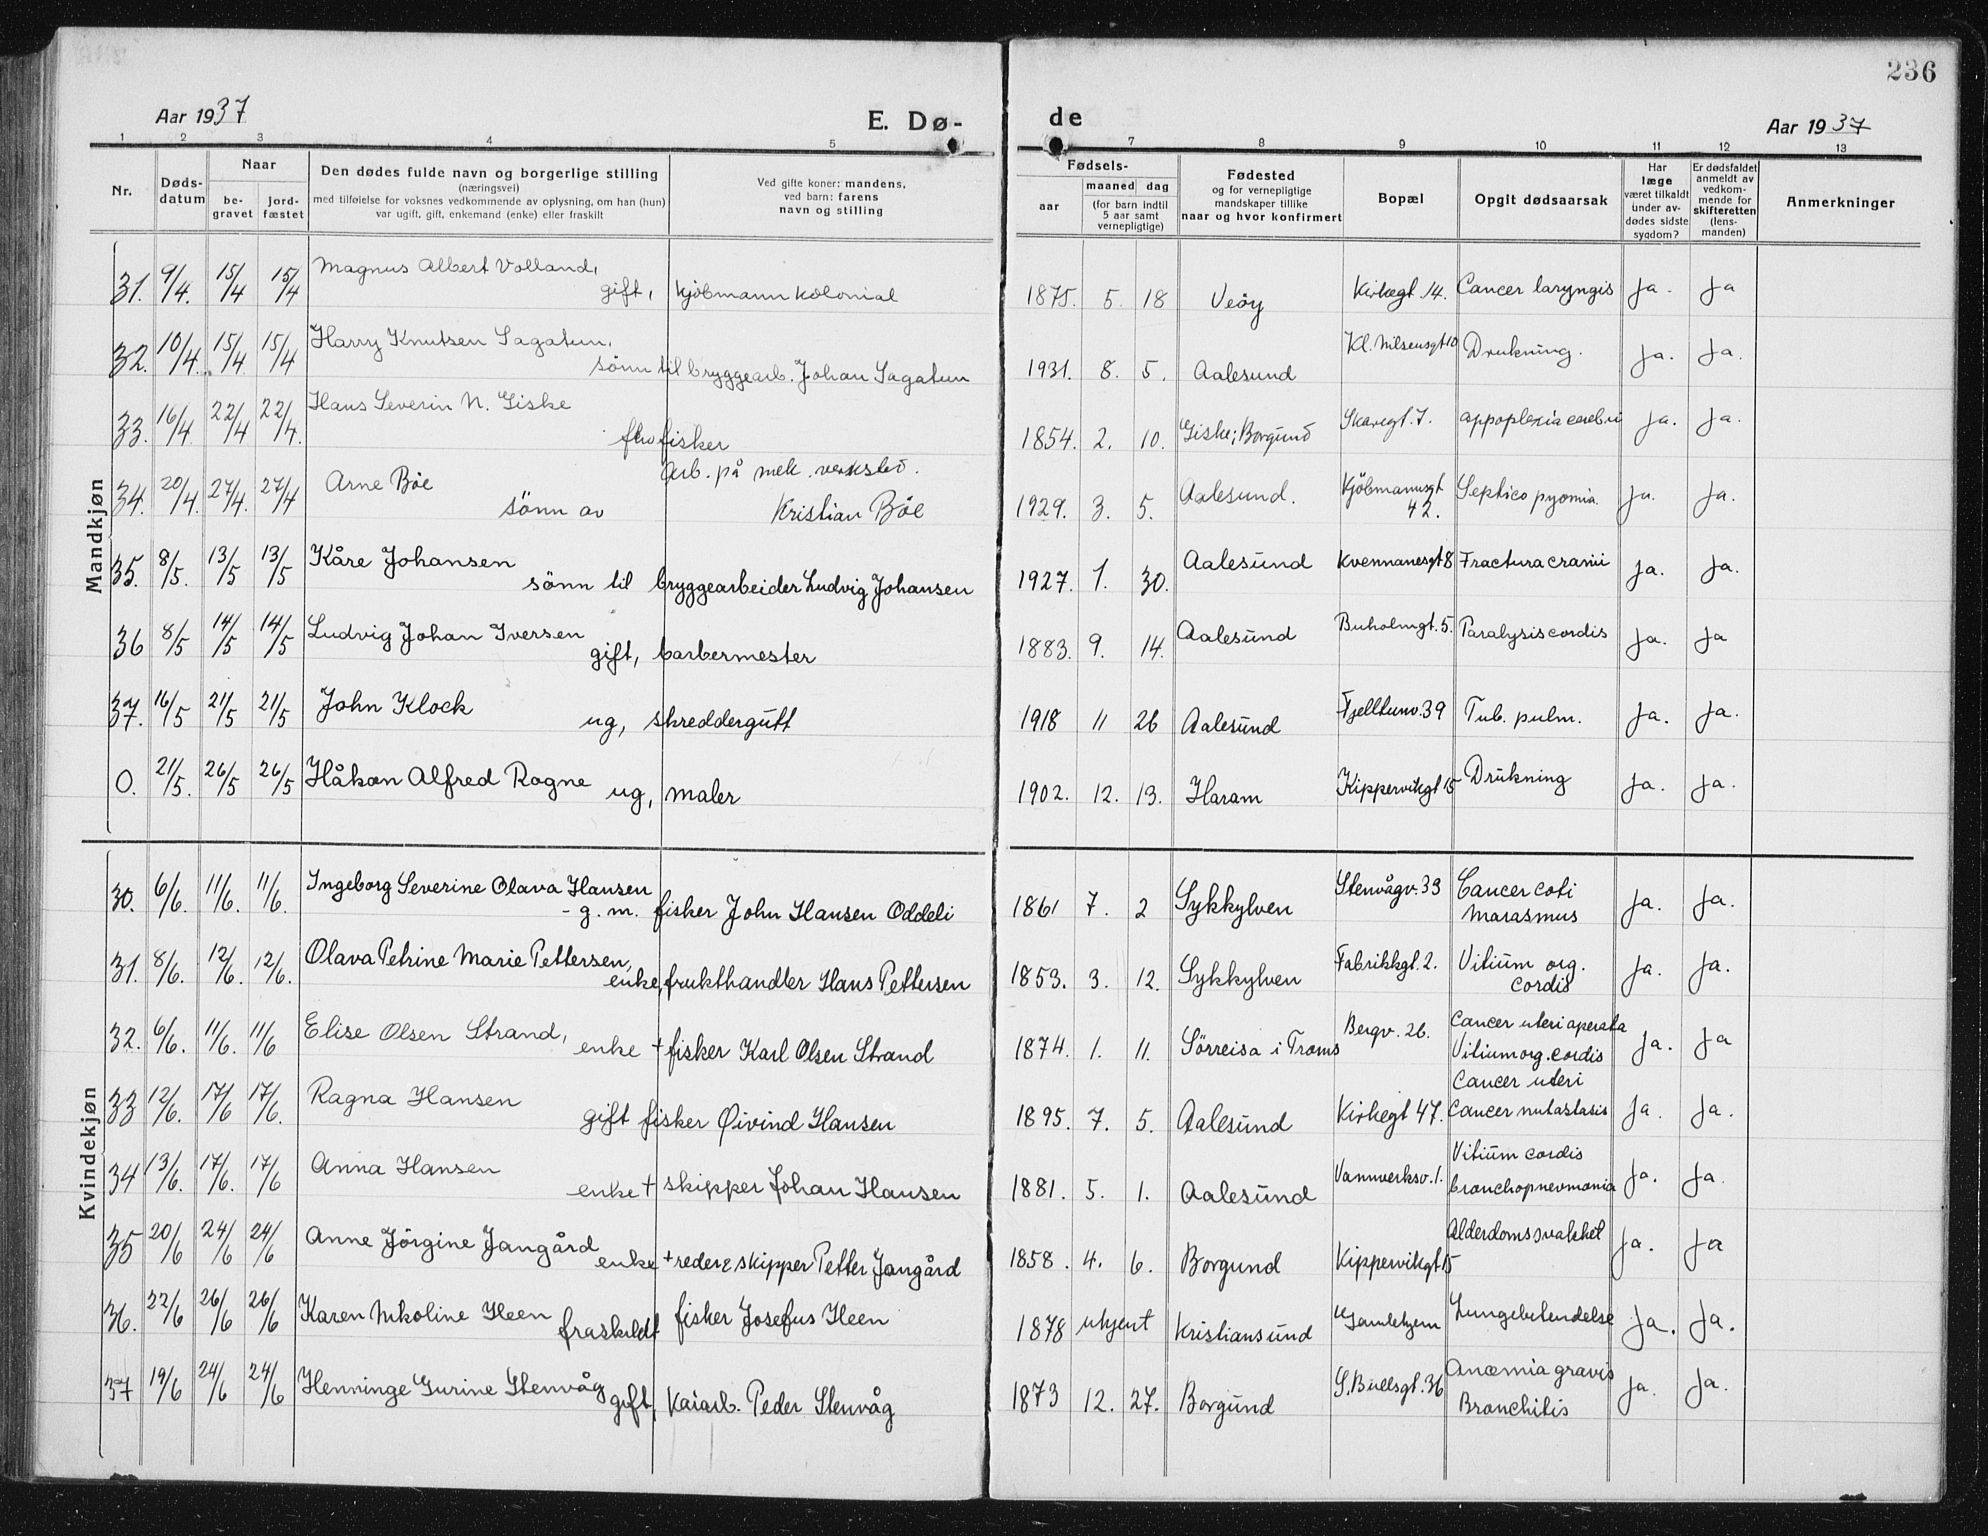 236
Aar 1937
E. Dø-
de
Aar 1937
1 2 3 4 5 7 8 9 10 11 12 13
Nr.
Døds-
datum
Naar
be-
gravet
jord-
fæstet
Den dødes fulde navn og borgerlige stilling
(næringsvei)
med tilføielse for voksnes vedkommende av oplysning, om han (hun)
var ugift, gift, enkemand (enke) eller fraskilt
Ved gifte koner: mandens,
ved barn: farens
navn og stilling
Fødsels-
aar
maaned dag
(for barn indtil
5 aar samt
vernepligtige)
Fødested
og for vernepligtige
mandskaper tillike
naar og hvor konfirmert
Bopæl
Opgit dødsaarsak
Har
læge
været tilkaldt
under av-
dødes sidste
sygdom?
Er dødsfaldet
anmeldt av
vedkom-
mende for
skifteretten
(lens-
manden)
Anmerkninger
Mandkjøn
31. 9/4. 15/4 15/4 Magnus Albert Volland,
gift, kjöbmann kolonial 1875. 5. 18 Veöy Kirkegt. 14. Cancer laryngis ja. ja
32. 10/4. 15/4. 15/4 Harry Knutsen Sagatun,
sönn til bryggearb. Johan Sagatun 1931. 8. 5. Aalesund Kl. Nilsensgt 10 Drukning. ja. ja.
33. 16/4 22/4 22/4. Hans Severin N. Giske
fhv fisker 1854. 2. 10. Giske, Borgund Skaregt. 7. appoplexia cerebri ja. ja.
34. 20/4. 27/4. 27/4 Arne Böe Arb. på mek. verksted.
sönn av Kristian Böe 1929. 3. 5. Aalesund. Kjöbmannsgt 42. Septico pyomia. ja. ja.
35. 8/5. 13/5 13/5 Kåre Johansen
sönn til bryggearbeider Ludvig Johansen 1927. 1. 30. Aalesund Kvennanesgt 8 Fractura cranii ja. ja.
36 8/5 14/5 14/5 Ludvig Johan Iversen
gift, barbermester 1883. 9. 14. Aalesund Buholmgt. 5. Paralysis cordis ja. ja
37. 16/5 21/5 21/5 John Klock
ug, skreddergutt 1918 11 26 Aalesund Fjelltunv. 39 Tub. pulm. ja. ja.
0. 21/5. 26/5 26/5 Håkon Alfred Rogne
ug, maler 1902. 12. 13. Haram Kippervikgt 15 Drukning ja. ja.
Kvindekjøn
30. 6/6. 11/6. 11/6. Ingeborg Severine Olava Hansen
- g. m. fisker John Hansen Oddeli 1861 7. 2 Sykkylven Stenvågv. 33 Cancer coli
marasmus ja. ja.
31. 8/6. 12/6. 12/6. Olava Petrine Marie Pettersen,
enke, frukthandler Hans Pettersen 1853. 3. 12. Sykkylven Fabrikkgt. 2. Vitium org.
cordis ja. ja.
32. 6/6. 11/6. 11/6 Elise Olsen Strand,
enke + fisker Karl Olsen Strand 1874. 1. 11. Sörreisa i Troms Bergv. 26. Cancer uteri aperata
Vitium org. cordis ja. ja
33 12/6. 17/6 17/6. Ragna Hansen
gift fisker Øivind Hansen 1895. 7. 5. Aalesund Kirkegt 47. Cancer uteri
cancer mutastasis ja. ja.
34 13/6. 17/6. 17/6 Anna Hansen
enke + skipper Johan Hansen 1881. 5. 1. Aalesund Vannverksv. 1. Vitium cordis
bronchopnevmonia ja. ja.
35 20/6 24/6 24/6 Anne Jörgine Jangård
enke + reder & skipper Petter Jangård 1858. 4. 6. Borgund Kippervikgt 15 Alderdomssvakhet ja. ja
36. 22/6 26/6 26/6 Karen Nikoline Heen
fraskildt fisker Josefus Heen 1878 ukjent Kristiansund Gamlehjem Lungebetendelse ja. ja.
37 19/6 24/6 24/6 Henninge Gurine Stenvåg
gift, Kaiarb. Peder Stenvåg 1873 12. 27. Borgund S. Bullsgt. 36 Anæmia gravis
Bronchitis ja. ja.